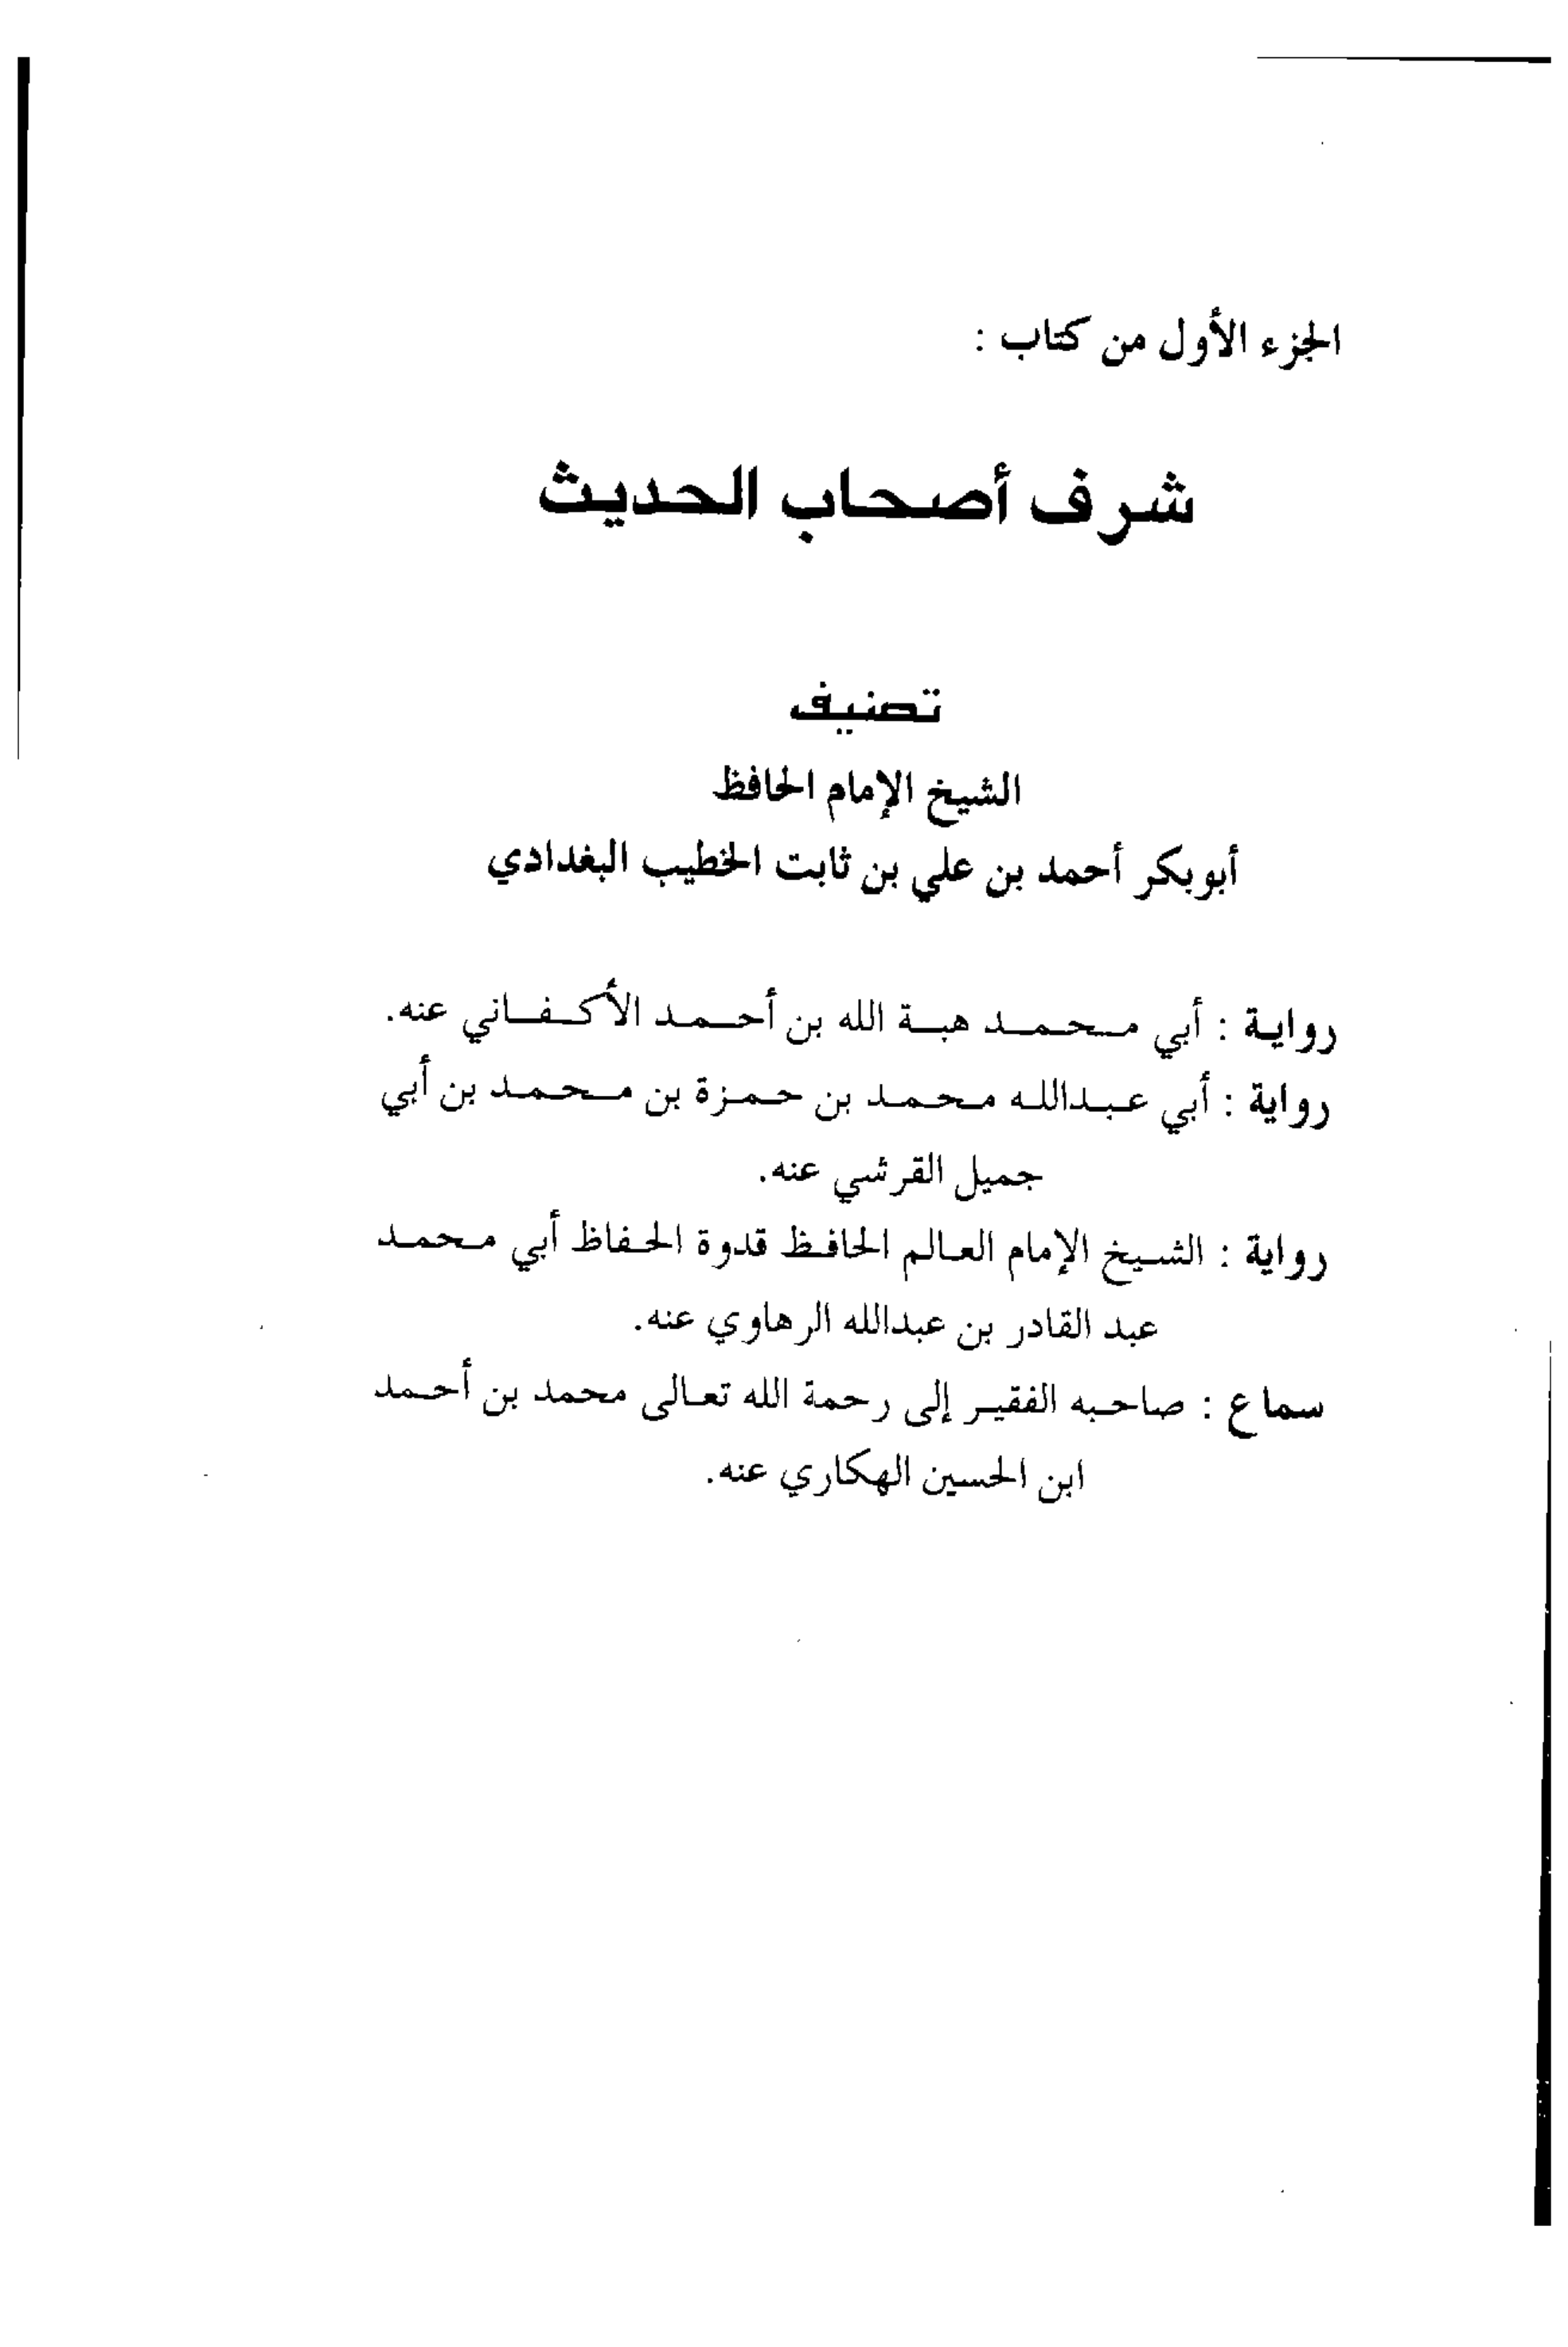 الجزء الأول من كتاب :
شرف أصحاب الحديث
تصنيف
الشيخ الإمام الحافظ
أبوبكر أحمد بن علي بن ثابت الخطيب البغدادي
رواية : أبي محمد هبة الله بن أحمد الأكفاني عنه.
رواية : أبي عبدالله محمد بن حمزة بن محمد بن أبي
جميل القرشي عنه.
رواية : الشيخ الإمام العالم الحافظ قدوة الحفاظ أبي محمد
عبد القادر بن عبدالله الرهاوي عنه.
سماع : صاحبه الفقير إلى رحمة الله تعالى محمد بن أحمد
ابن الحسين الهكاري عنه.